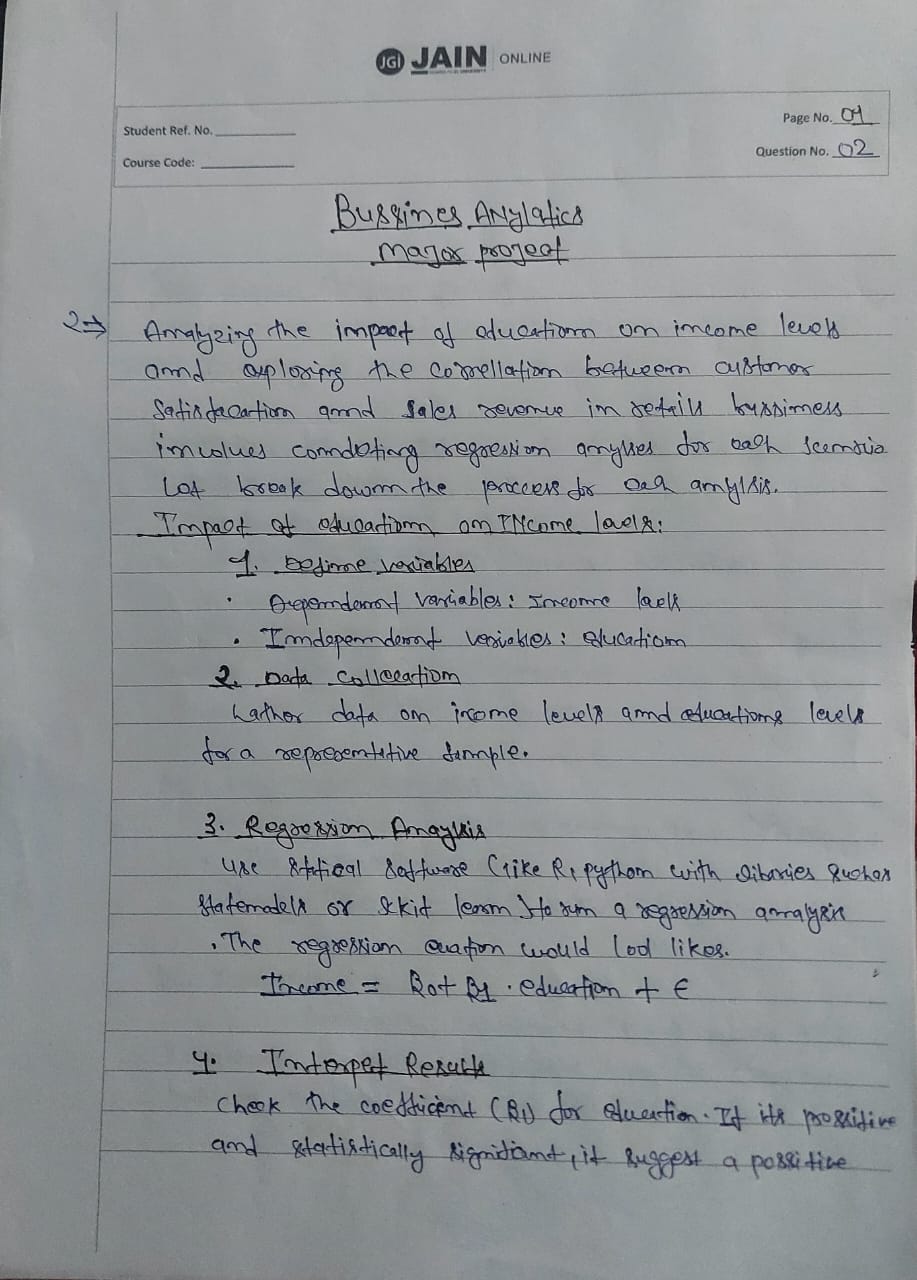 JGI JAIN ONLINE
Page No. 01
Student Ref. No.
Question No. 02
Course Code:
Bussines ANylatics
major project
2⇒ Analyzing the impact of education on income levels
and exploring the Correllation between customer
Satisfacartion and sales revenue in retail bussiness
involues condoting regression anylses for each scenario
Let break down the proccess for each anylsis.
Impact of education on INcome levels:
1. Define variables
• Dependent variables: Income levels
• Independent variables: education
2. Data Collecation
Gather data on income levels and educations levels
for a representitive sample.
3. Regression Anaylsis
Use statical software (like R, python with libaries suchas
statemodels or sckit learn) to run a regression analysis
• The regression euation would lool likes.
Income = B0+ B1 · education + ϵ
4. Interpet Results
Check the coefficient (B1) for education. If its possitive
and statistically significant, it suggest a possitive